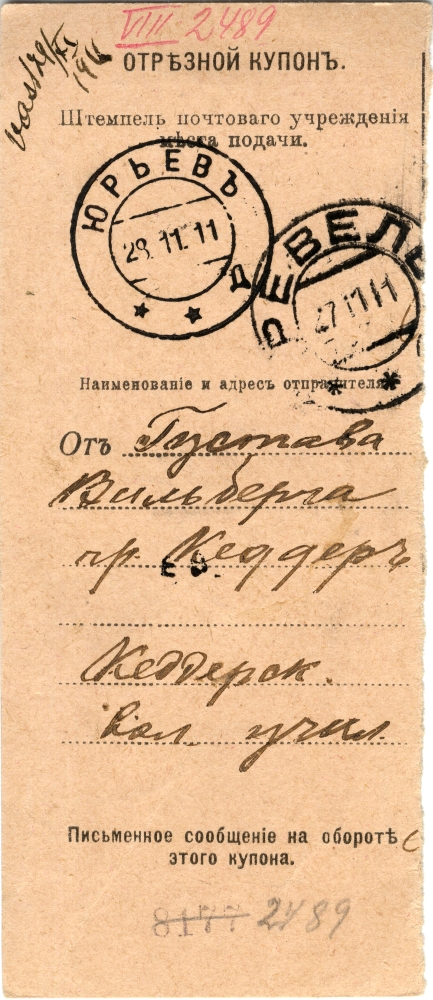 VIII 2489
vast 29/XI 1911
ОТРѢЗНОЙ КУПОНЪ.
Штемпель почтоваго учрежденія
мѣста подачи.
ЮРЬЕВЪ
28.11.11
РЕВЕЛЬ
27 11 11
Наименованіе и адресъ отправителя
Отъ Густава
Вильберга
чр. Кеддеръ
Кеддерск.
вол. учил.
Письменное сообщеніе на оборотѣ
этого купона.
8177 2489